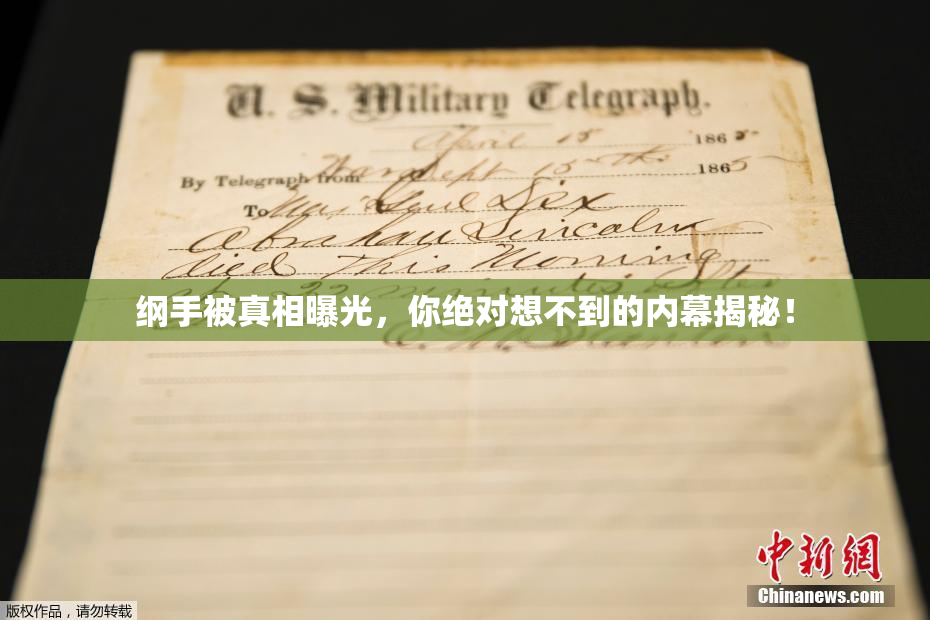 U. S. Military Telegraph.
April 15 1865
By Telegraph from War Dept 15th 1865
To Maj Genl Dix
Abraham Lincoln
died This Morning
at 22 minutes after
纲手被真相曝光，你绝对想不到的内幕揭秘！
E. M. Stanton
中新网
Chinanews.com
版权作品，请勿转载